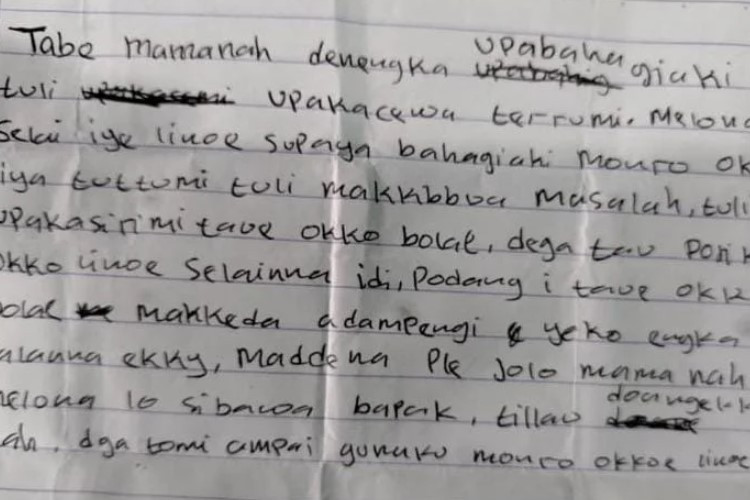 Tabe mamanah denengka upabaha giaki
tuli upakacewa terrumi. Melona
Selai iye linoe supaya bahagiaki mouro ok
iya tuttumi tuli makkibbua masalah, tuli
upakasirimi taue okko bolae, dega tau pon
okko linoe selainna idi, Padang i taue okk
bolae makkeda adampengi yeko engka
alanna ekky, Maddena Ple jolo mamanah
melona lo sibawa bapak, tillau doangekk
dga tomi ampai gunaku mouro okkoe linoe